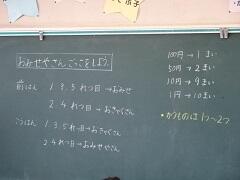 おみせやさんごっこをしよう。
前はん 1.3.5れつ目→おみせ
2.4れつ目→おきゃくさん
こうはん 1.3.5れ目→おきゃくさん
2.4れつ目→おみせやさん
100円→1まい
50円→2まい
10円→9まい
1円→10まい
・かうものは1つ〜2つ